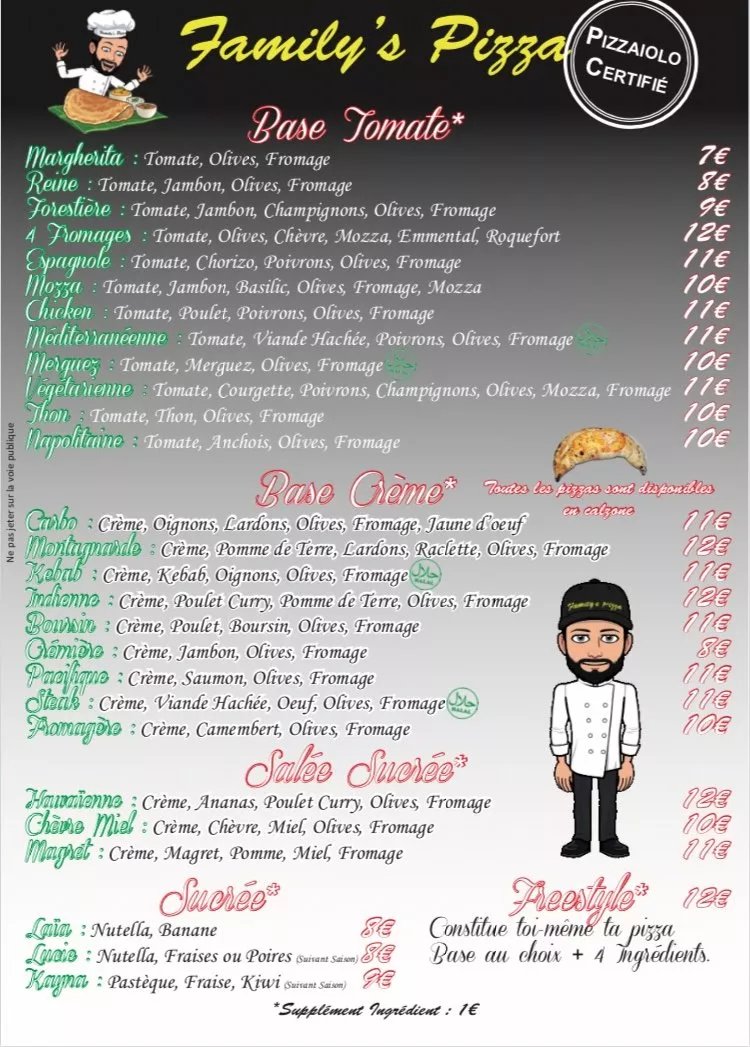 Family's Pizza
PIZZAIOLO
CERTIFIÉ
Base Tomate*
Margherita : Tomate, Olives, Fromage 7€
Reine : Tomate, Jambon, Olives, Fromage 8€
Forestière : Tomate, Jambon, Champignons, Olives, Fromage 9€
4 Fromages : Tomate, Olives, Chèvre, Mozza, Emmental, Roquefort 12€
Espagnole : Tomate, Chorizo, Poivrons, Olives, Fromage 11€
Mozza : Tomate, Jambon, Basilic, Olives, Fromage, Mozza 10€
Chicken : Tomate, Poulet, Poivrons, Olives, Fromage 11€
Méditerranéenne : Tomate, Viande Hachée, Poivrons, Olives, Fromage 11€
Merguez : Tomate, Merguez, Olives, Fromage 10€
Végétarienne : Tomate, Courgette, Poivrons, Champignons, Olives, Mozza, Fromage 11€
Thon : Tomate, Thon, Olives, Fromage 10€
Napolitaine : Tomate, Anchois, Olives, Fromage 10€
Ne pas jeter sur la voie publique
Base Crème*
Toutes les pizzas sont disponibles
en calzone
Carbo : Crème, Oignons, Lardons, Olives, Fromage, Jaune d'oeuf 11€
Montagnarde : Crème, Pomme de Terre, Lardons, Raclette, Olives, Fromage 12€
Kebab : Crème, Kebab, Oignons, Olives, Fromage حلال HALAL 11€
Indienne : Crème, Poulet Curry, Pomme de Terre, Olives, Fromage 12€
Boursin : Crème, Poulet, Boursin, Olives, Fromage 11€
Crémière : Crème, Jambon, Olives, Fromage 8€
Pacifique : Crème, Saumon, Olives, Fromage 11€
Steak : Crème, Viande Hachée, Oeuf, Olives, Fromage حلال HALAL 11€
Fromagère : Crème, Camembert, Olives, Fromage 10€
Family's pizza
Salée Sucrée*
Hawaïenne : Crème, Ananas, Poulet Curry, Olives, Fromage 12€
Chèvre Miel : Crème, Chèvre, Miel, Olives, Fromage 10€
Magret : Crème, Magret, Pomme, Miel, Fromage 11€
Sucrée*
Laïa : Nutella, Banane 8€
Lucie : Nutella, Fraises ou Poires (Suivant Saison) 8€
Kayna : Pastèque, Fraise, Kiwi (Suivant Saison) 9€
Freestyle* 12€
Constitue toi-même ta pizza
Base au choix + 4 Ingrédients.
*Supplément Ingrédient : 1€